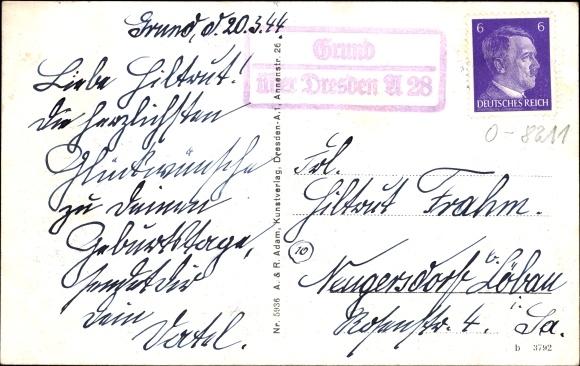 Grund, d. 20.3.44
Liebe Hiltrut!
Die herzlichsten
Glückwünsche
zu Deinem
Geburtstage,
sendet Dir
Dein
Vatel.
Grund
über Dresden A 28
6 6
DEUTSCHES REICH
0-8211
Nr. 5936 A. & R. Adam, Kunstverlag, Dresden-A.1, Annenstr. 26
Frl.
Hiltrut Frahm.
10
Neugersdorf b. Löbau
Rosenstr. 4. i. Sa.
b 3792